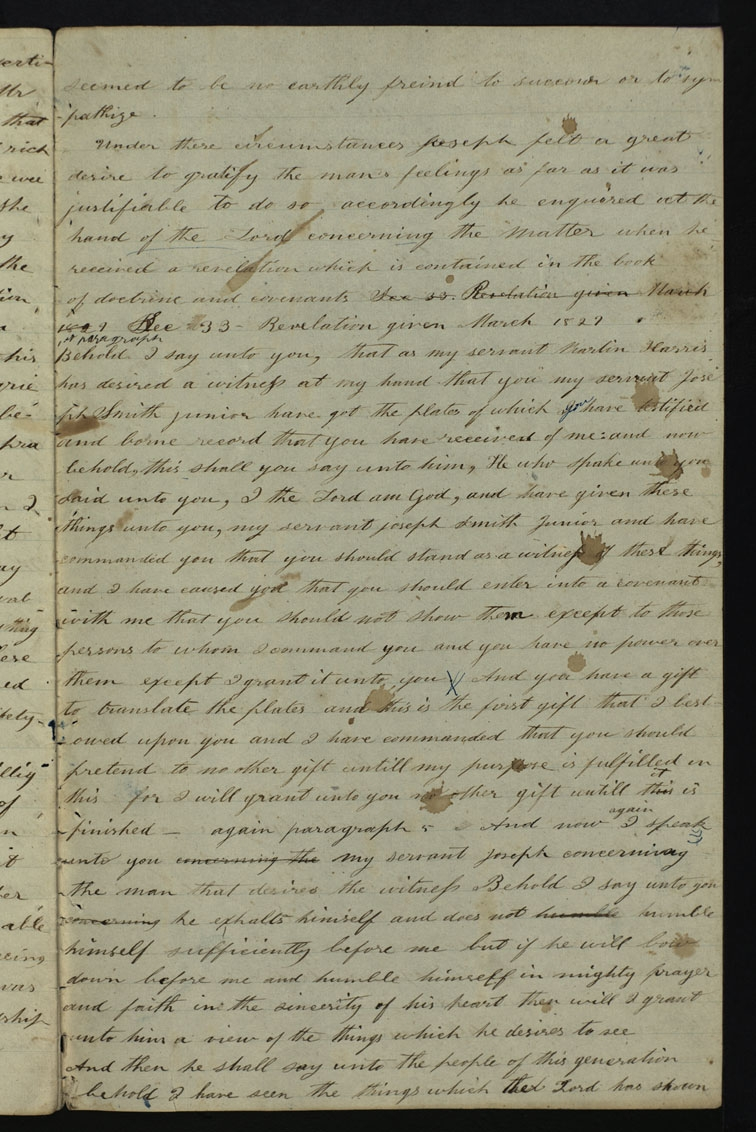 seemed to be no earthly freind to succour or to sym
-pathize.
Under these circumstances Joseph felt a great
desire to gratify the man's feelings as far as it was
justifiable to do so accordingly he enquired at the
hand of the Lord concerning the Matter when he
received a revelation which is contained in the book
of doctrine and covenants Sec 33. Revelation given March
1829 Sec 33 - Revelation given March 1829
1st paragraph
Behold I say unto you, that as my servant Martin Harris
has desired a witness at my hand that you my servant Jose
ph Smith junior have got the plates of which you have testified
and borne record that you have received of me: and now
behold, this shall you say unto him, He who spake unto you
said unto you, I the Lord am God, and have given these
things unto you, my servant joseph Smith Junior and have
commanded you that you should stand as a witness of these things,
and I have caused you that you should enter into a covenant
with me that you should not show them except to those
persons to whom I command you and you have no power over
them except I grant it unto you And you have a gift
to translate the plates and this is the first gift that I best-
-owed upon you and I have commanded that you should
pretend to no other gift untill my purpose is fulfilled in
this for I will grant unto you no other gift untill it is
finished - again paragraph And now again I speak
unto you concerning the my servant joseph concerning
the man that desires the witness Behold I say unto you
concerning he exhalts himself and does not humble humble
himself sufficiently before me but if he will bow
down before me and humble himself in mighty prayer
and faith in the sincerity of his heart then will I grant
unto him a view of the things which he desires to see
And then he shall say unto the people of this generation
behold I have seen the things which the Lord has shown